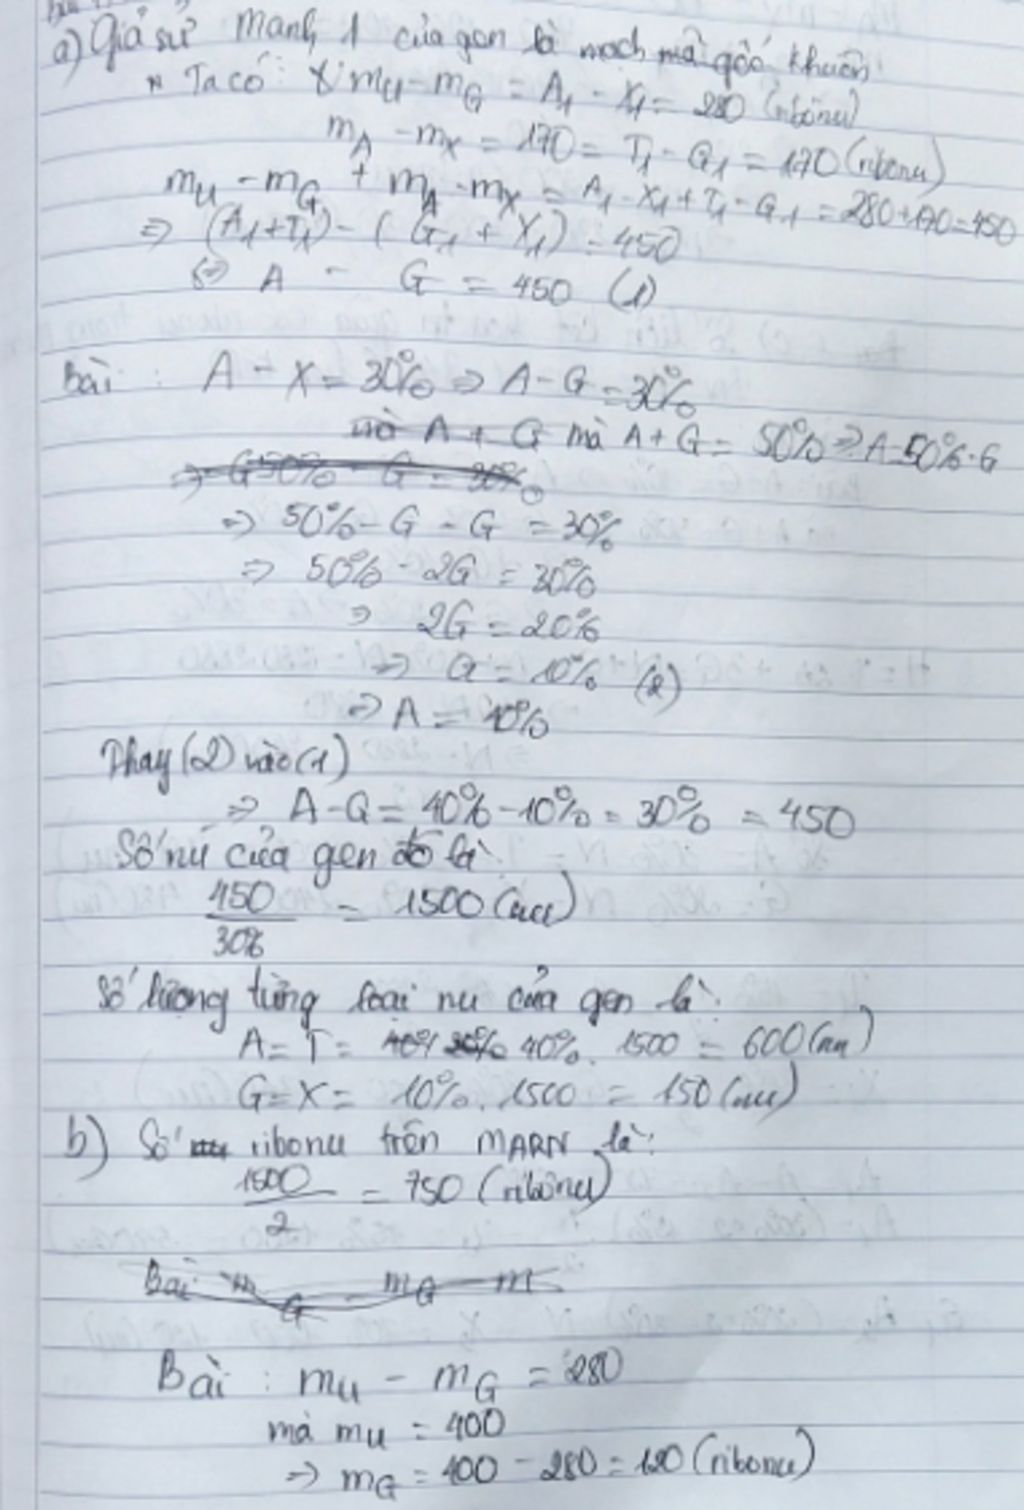 a) Giả sử mạch 1 của gen là mạch mã gốc khuôn
* Ta có: mU - mG = A1 - X1 = 280 (ribônu)
mA - mX = 170 = T1 - G1 = 170 (ribonu)
mU - mG + mA - mX = A1 - X1 + T1 - G1 = 280 + 170 = 450
=> (A1 + T1) - (G1 + X1) = 450
<=> A - G = 450 (1)
Bài: A - X = 30% => A - G = 30%
mà A + G = 50% => A = 50% - G
=> 50% - G - G = 30%
=> 50% - 2G = 30%
=> 2G = 20%
=> G = 10% (2)
=> A = 40%
Thay (2) vào (1)
=> A - G = 40% - 10% = 30% = 450
Số nu của gen đó là:
450/30% = 1500 (nu)
Số lượng từng loại nu của gen là:
A = T = 40%. 1500 = 600 (nu)
G = X = 10%. 1500 = 150 (nu)
b) Số ribonu trên mARN là:
1500/2 = 750 (ribônu)
Bài: mU - mG = 280
mà mU = 400
=> mG = 400 - 280 = 120 (ribonu)